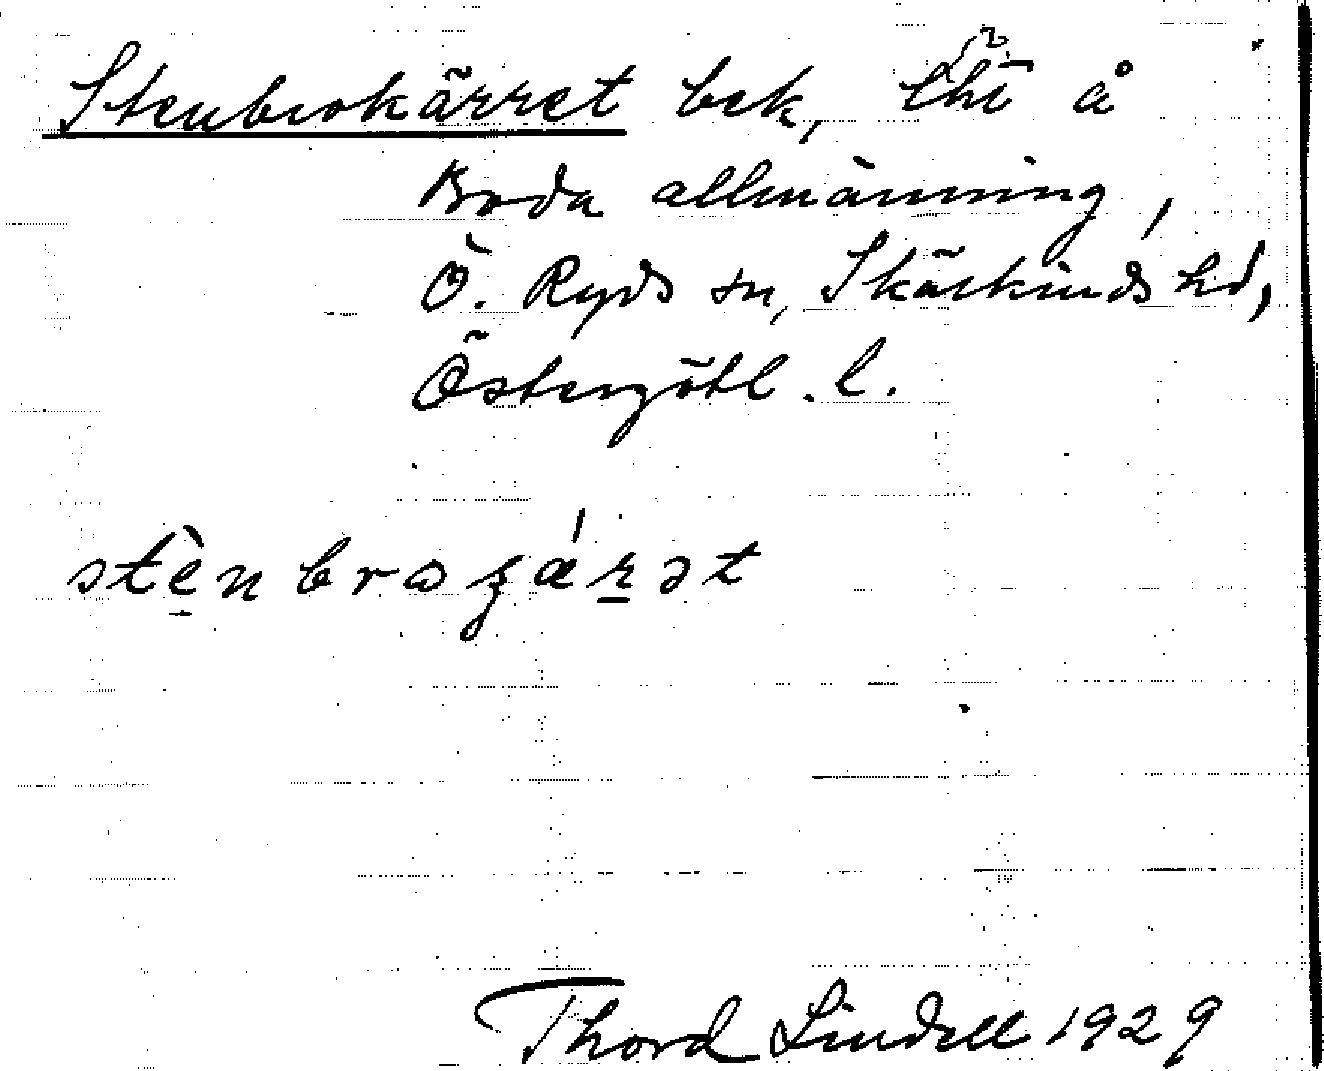 Stenbrokärret bek,        å
Boda allmänning,
Ö. Ryds sn, Skärkinds hd,
Östergötl. l.
stènbroʒárət
Thord Lindell 1929